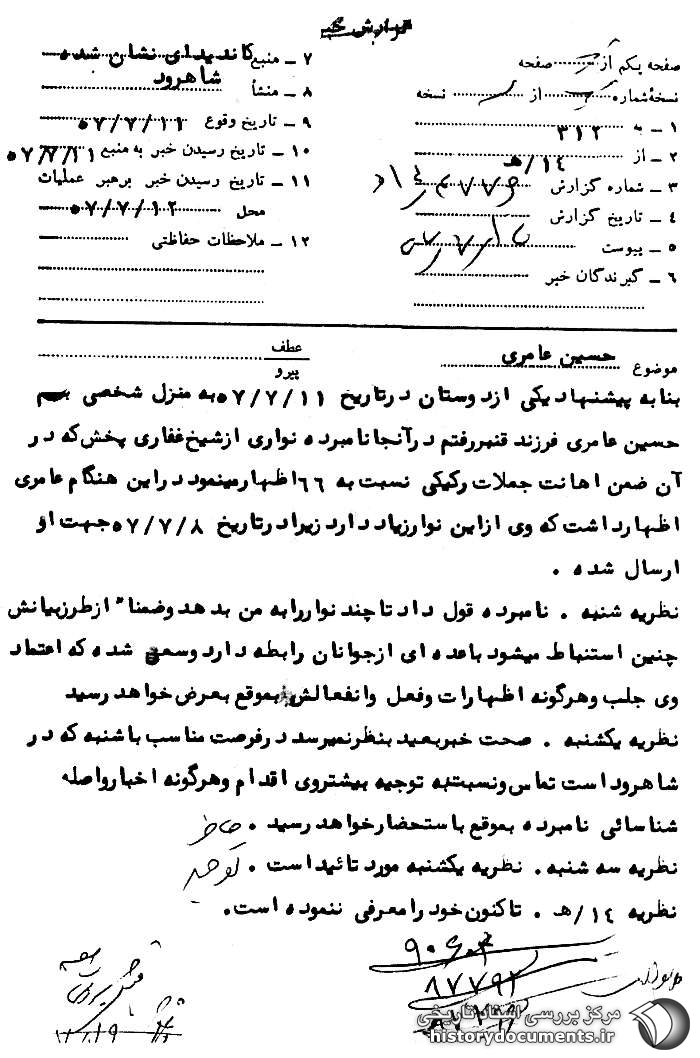 گزارش خبر
صفحه یکم از صفحه
نسخهٔ شماره از نسخه
۱ ـ به ۳۱۲
۲ ـ از ۱۴/هـ
۳ ـ شماره گزارش
۴ ـ تاریخ گزارش
۵ ـ پیوست
۶ ـ گیرندگان خبر
۷ ـ منبع کاندیدای نشان شده
۸ ـ منشأ شاهرود
۹ ـ تاریخ وقوع ۵۷/۷/۱۱
۱۰ ـ تاریخ رسیدن خبر به منبع ۵۷/۷/۱۱
۱۱ ـ تاریخ رسیدن خبر برهبر عملیات
محل ۵۷/۷/۱۲
۱۲ ـ ملاحظات حفاظتی
موضوع حسین عامری
عطف
پیرو
بنا به پیشنهاد یکی از دوستان در تاریخ ۵۷/۷/۱۱ به منزل شخصی بسم
حسین عامری فرزند قنبر رفتم در آنجا نامبرده نواری از شیخ غفاری پخش که در
آن ضمن اهانت جملات رکیکی نسبت به ۶۶ اظهار مینمود در این هنگام عامری
اظهار داشت که وی از این نوار زیاد دارد زیرا در تاریخ ۵۷/۷/۸ جهت او
ارسال شده .
نظریه شنبه . نامبرده قول داد تا چند نوار را به من بدهد و ضمنا" از طرز بیانش
چنین استنباط میشود با عده ای از جوانان رابطه دارد و سعی شده که اعتماد
وی جلب و هرگونه اظهارات و فعل و انفعالش بموقع بعرض خواهد رسید
نظریه یکشنبه . صحت خبر بعید بنظر نمیرسد در فرصت مناسب با شنبه که در
شاهرود است تماس و نسبت به توجیه بیشتر وی اقدام و هرگونه اخبار واصله
شناسائی نامبرده بموقع باستحضار خواهد رسید .
نظریه سه شنبه . نظریه یکشنبه مورد تائید است .
نظریه ۱۴/هـ . تاکنون خود را معرفی ننموده است .
۹۰۶۰۲
۸۷۷۹۲
مرکز بررسی اسناد تاریخی
historydocuments.ir